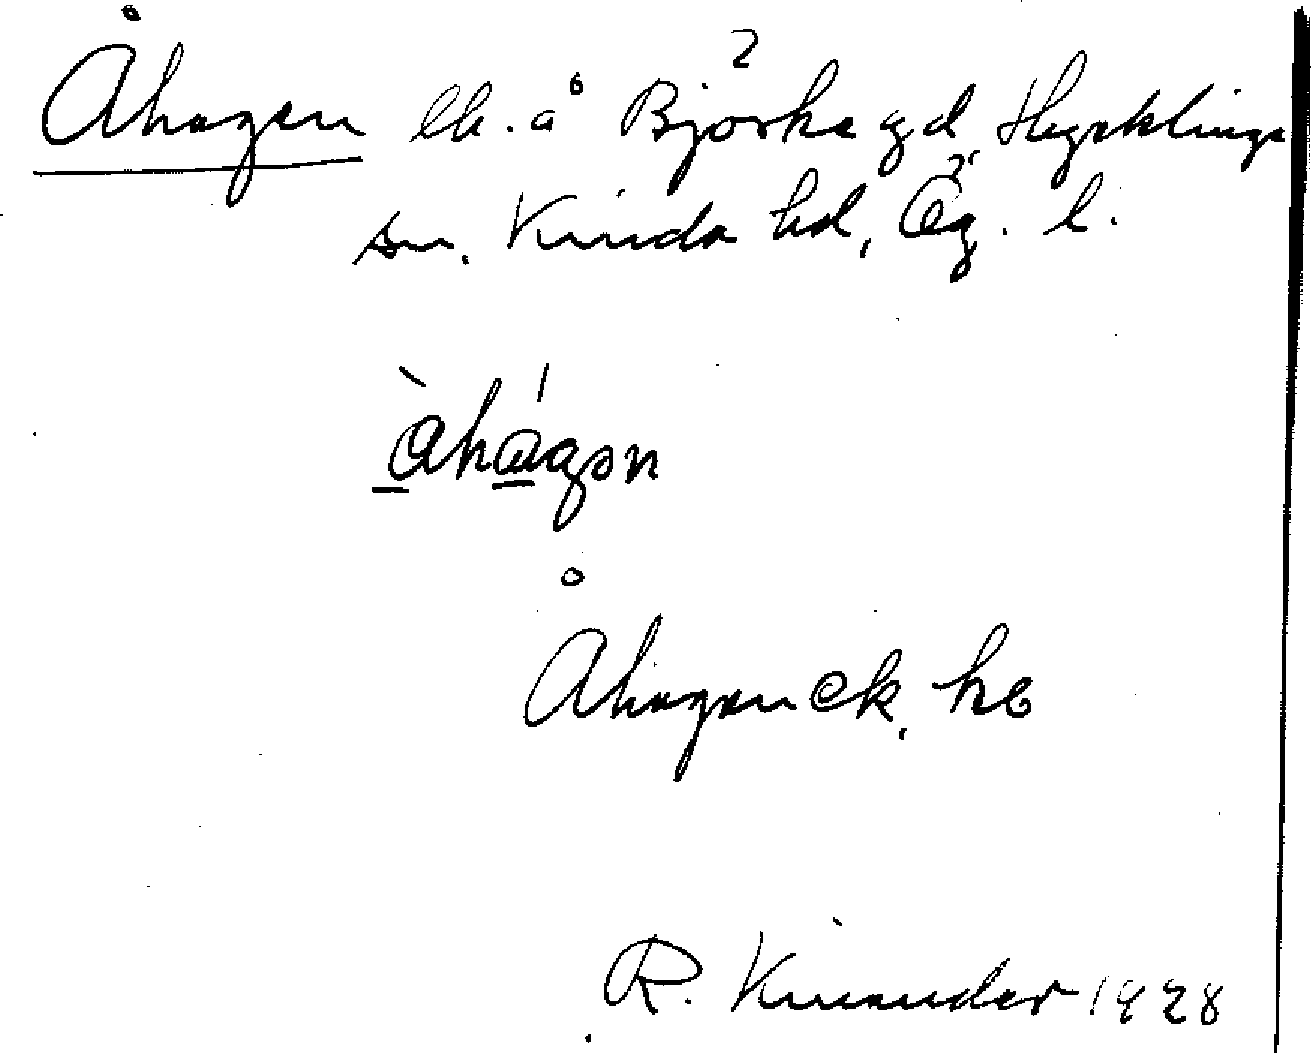 Åhagen lh. å Björka gd Hycklinge
sn. Kinda hd, Ög. l.
àhágən
Åhagen ek, he
R. Kinander 1928